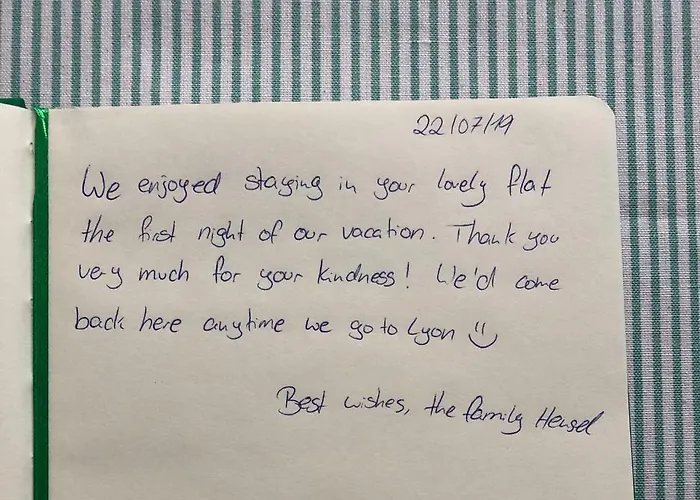 22/07/19
We enjoyed staying in your lovely flat
the first night of our vacation. Thank you
very much for your kindness! We'd come
back here anytime we go to Lyon :)
Best wishes, the family Hensel